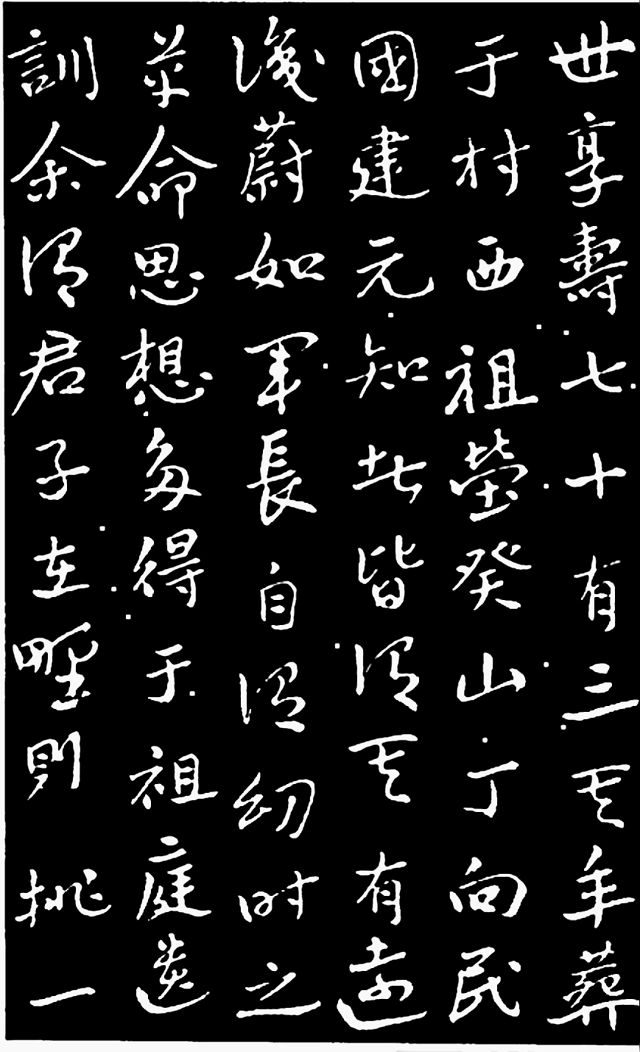 世享壽七十有三其年葬
于村西祖塋癸山丁向民
國建元知此皆謂其有遠
識蔚如軍長自謂幼時之
革命思想多得于祖庭遺
訓余謂君子在野則挑一